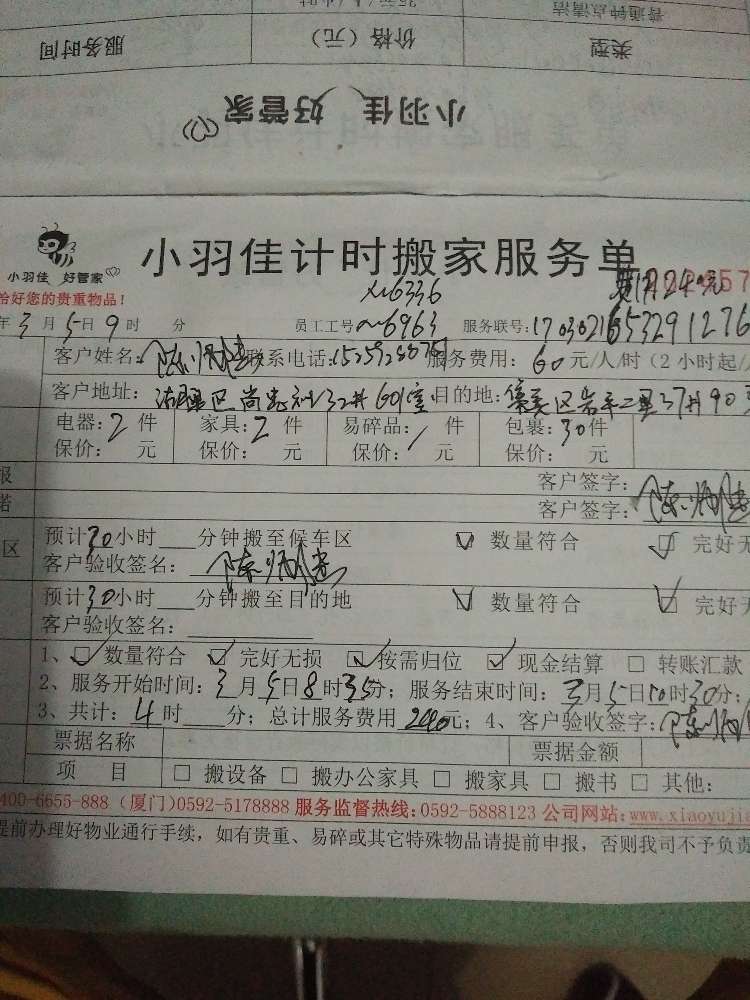 普通钟点清洁
类型 价格（元） 服务时间
小羽佳 好管家
小羽佳 好管家
小羽佳计时搬家服务单
恰好您的贵重物品！
费用240元
xm6336
年3月5日9时 分 员工工号xm6963 服务联号:1703021653291276
客户姓名: 联系电话: 服务费用: 60元/人/时（2小时起/
客户地址: 湖里区尚忠社32#601室 目的地: 集美区 二里37#90
电器: 2件 家具: 2件 易碎品: / 件 包裹: 30件
保价: 元 保价: 元 保价: 元 保价: 元
报 客户签字:
诺 客户签字:
区 预计30小时___分钟搬至候车区 ☑ 数量符合 ☑ 完好无
客户验收签名:
预计30小时___分钟搬至目的地 ☑ 数量符合 ☑ 完好无
客户验收签名:
1、☑数量符合 ☑ 完好无损 ☑ 按需归位 ☑ 现金结算 □ 转账汇款
2、服务开始时间: 3月5日8时35分; 服务结束时间: 3月5日10时30分;
3、共计: 4时___分; 总计服务费用 240元; 4、客户验收签字:
票据名称 票据金额
项 目 □ 搬设备 □ 搬办公家具 □ 搬家具 □ 搬书 □ 其他:
400-6655-888（厦门)0592-5178888 服务监督热线:0592-5888123 公司网站:www.xiaoyujia
提前办理好物业通行手续，如有贵重、易碎或其它特殊物品请提前申报，否则我司不予负责